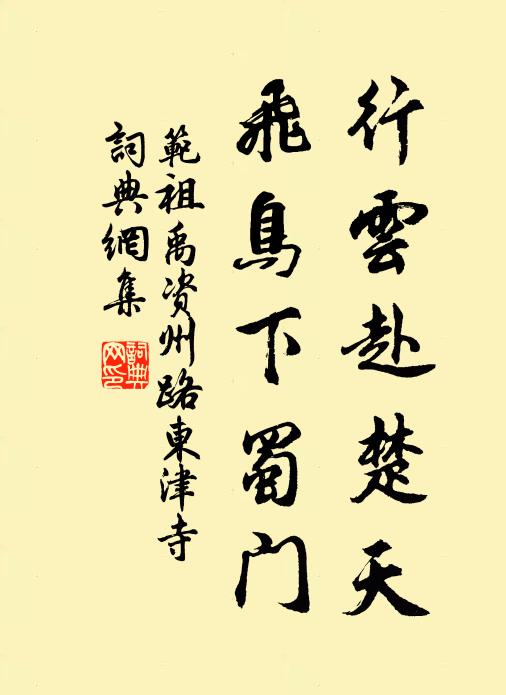 行雲赴楚天
飛鳥下蜀門
範祖禹資州路東津寺
詞典網集
詞典
网印